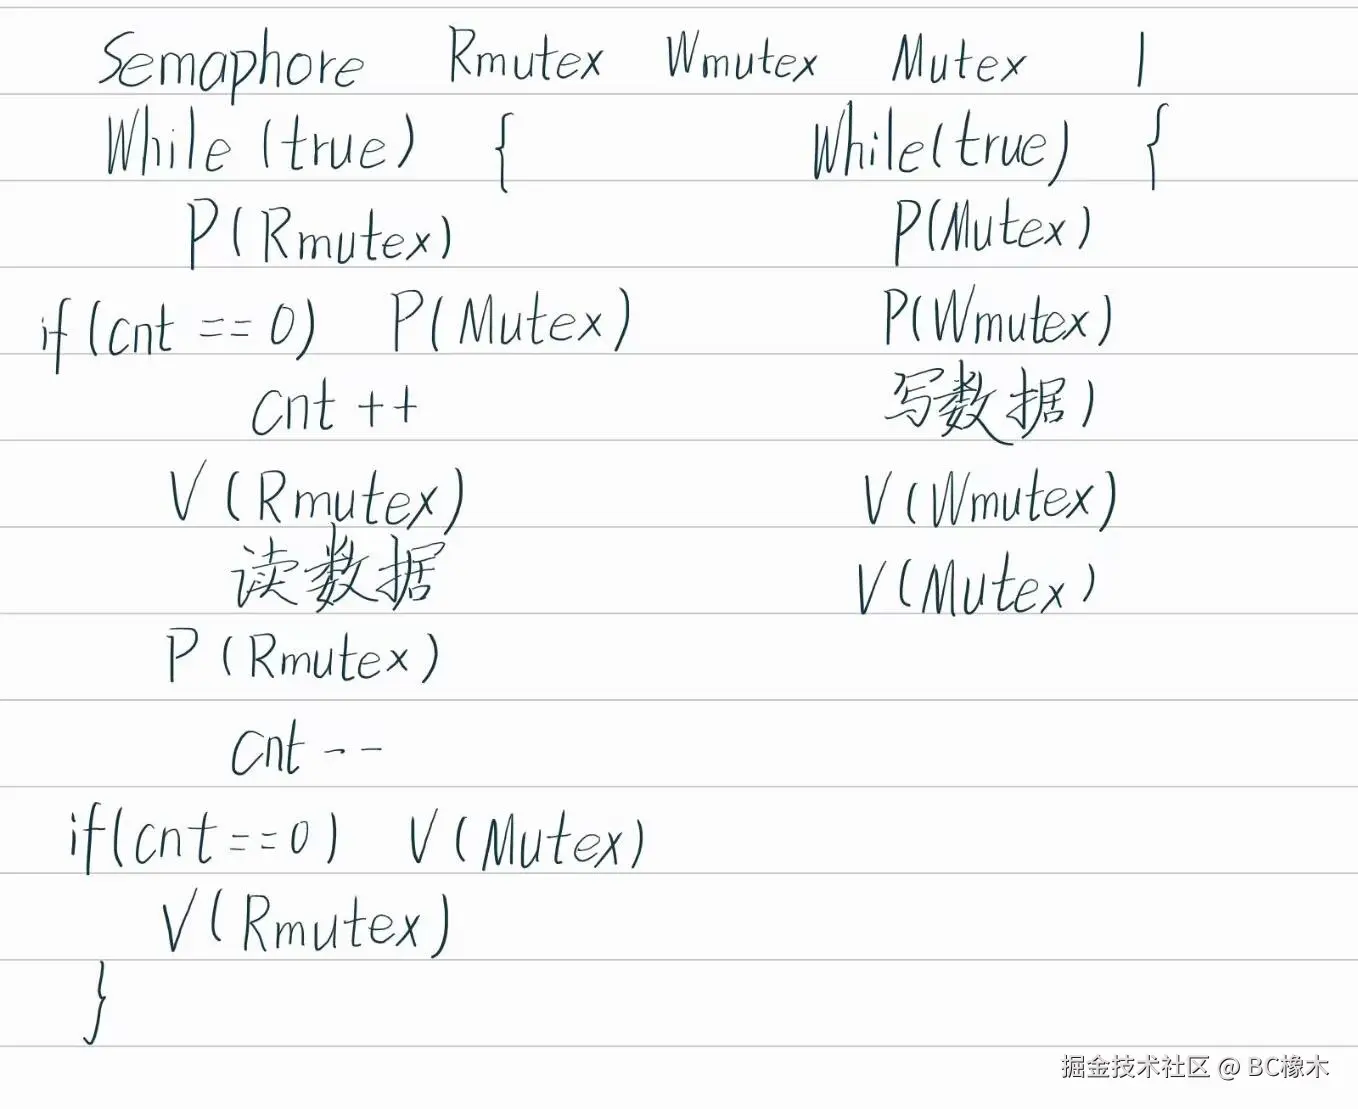 Semaphore Rmutex Wmutex Mutex 1
While (true) {
P(Rmutex)
if(cnt == 0) P(Mutex)
cnt ++
V(Rmutex)
读数据
P(Rmutex)
cnt --
if(cnt==0) V(Mutex)
V(Rmutex)
}
While(true) {
P(Mutex)
P(Wmutex)
写数据)
V(Wmutex)
V(Mutex)
掘金技术社区 @ BC橡木